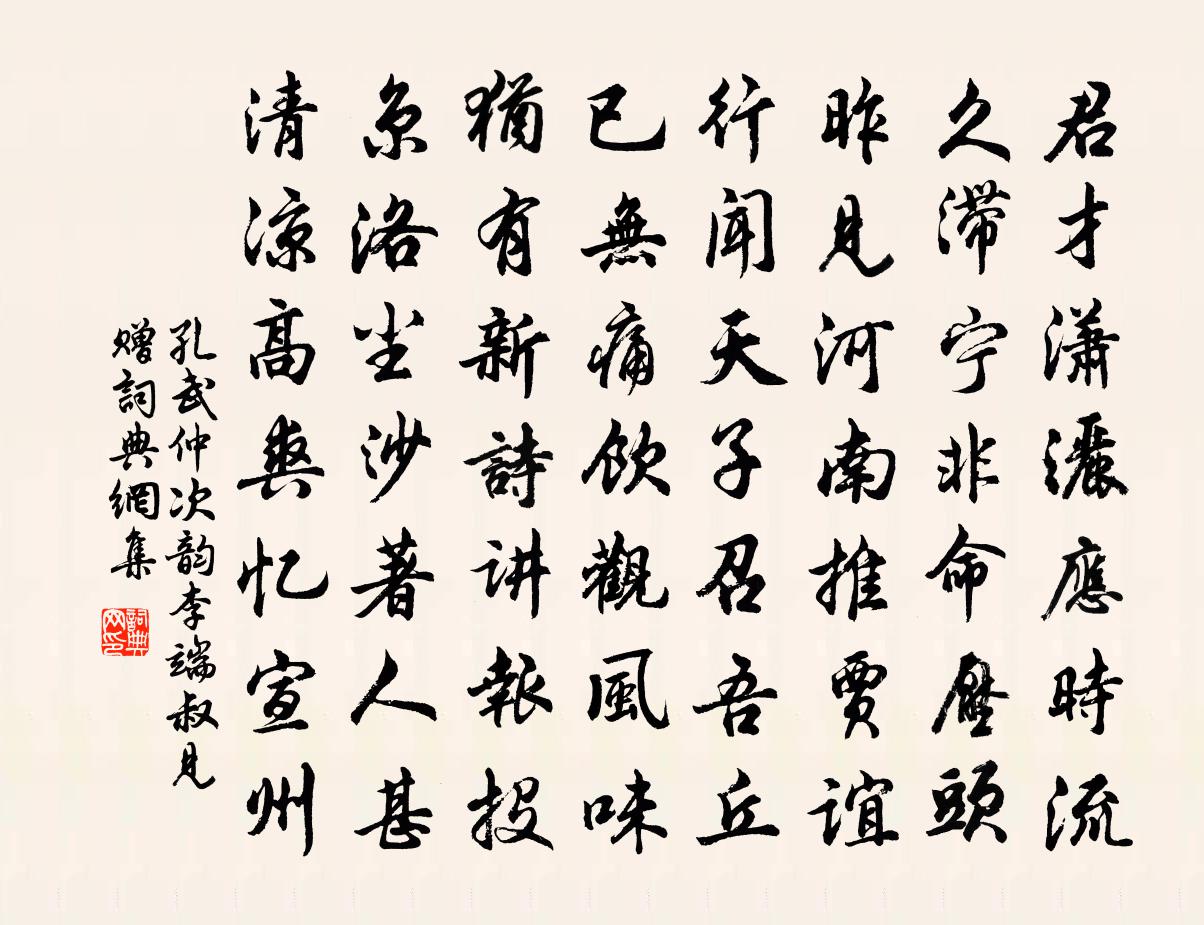 君才瀟灑應時流
久滯宁非命壓頭
昨見河南推賈誼
行聞天子召吾丘
已無痛飲觀風味
猶有新詩讲報投
京洛尘沙著人甚
清凉高爽忆宣州
孔武仲次韵李端叔見
赠詞典網集
詞典网印